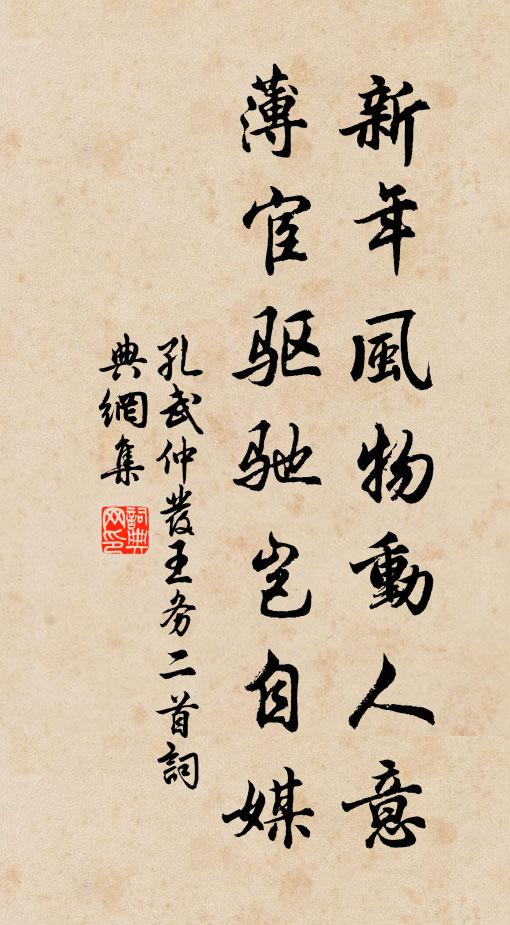 新年風物動人意
薄宦驱驰岂自媒
孔武仲發王务二首詞
典網集
詞典
网印